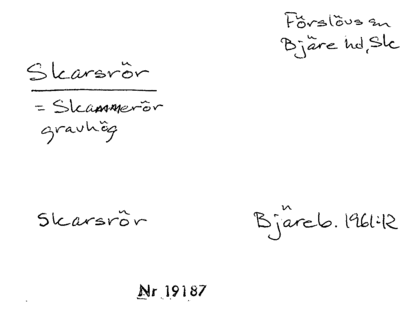 Förslövs sn
Bjäre hd, Sk
Skarsrör
= Skammerör
gravhög
Skarsrör
Bjäreb. 1961:12
Nr 19187